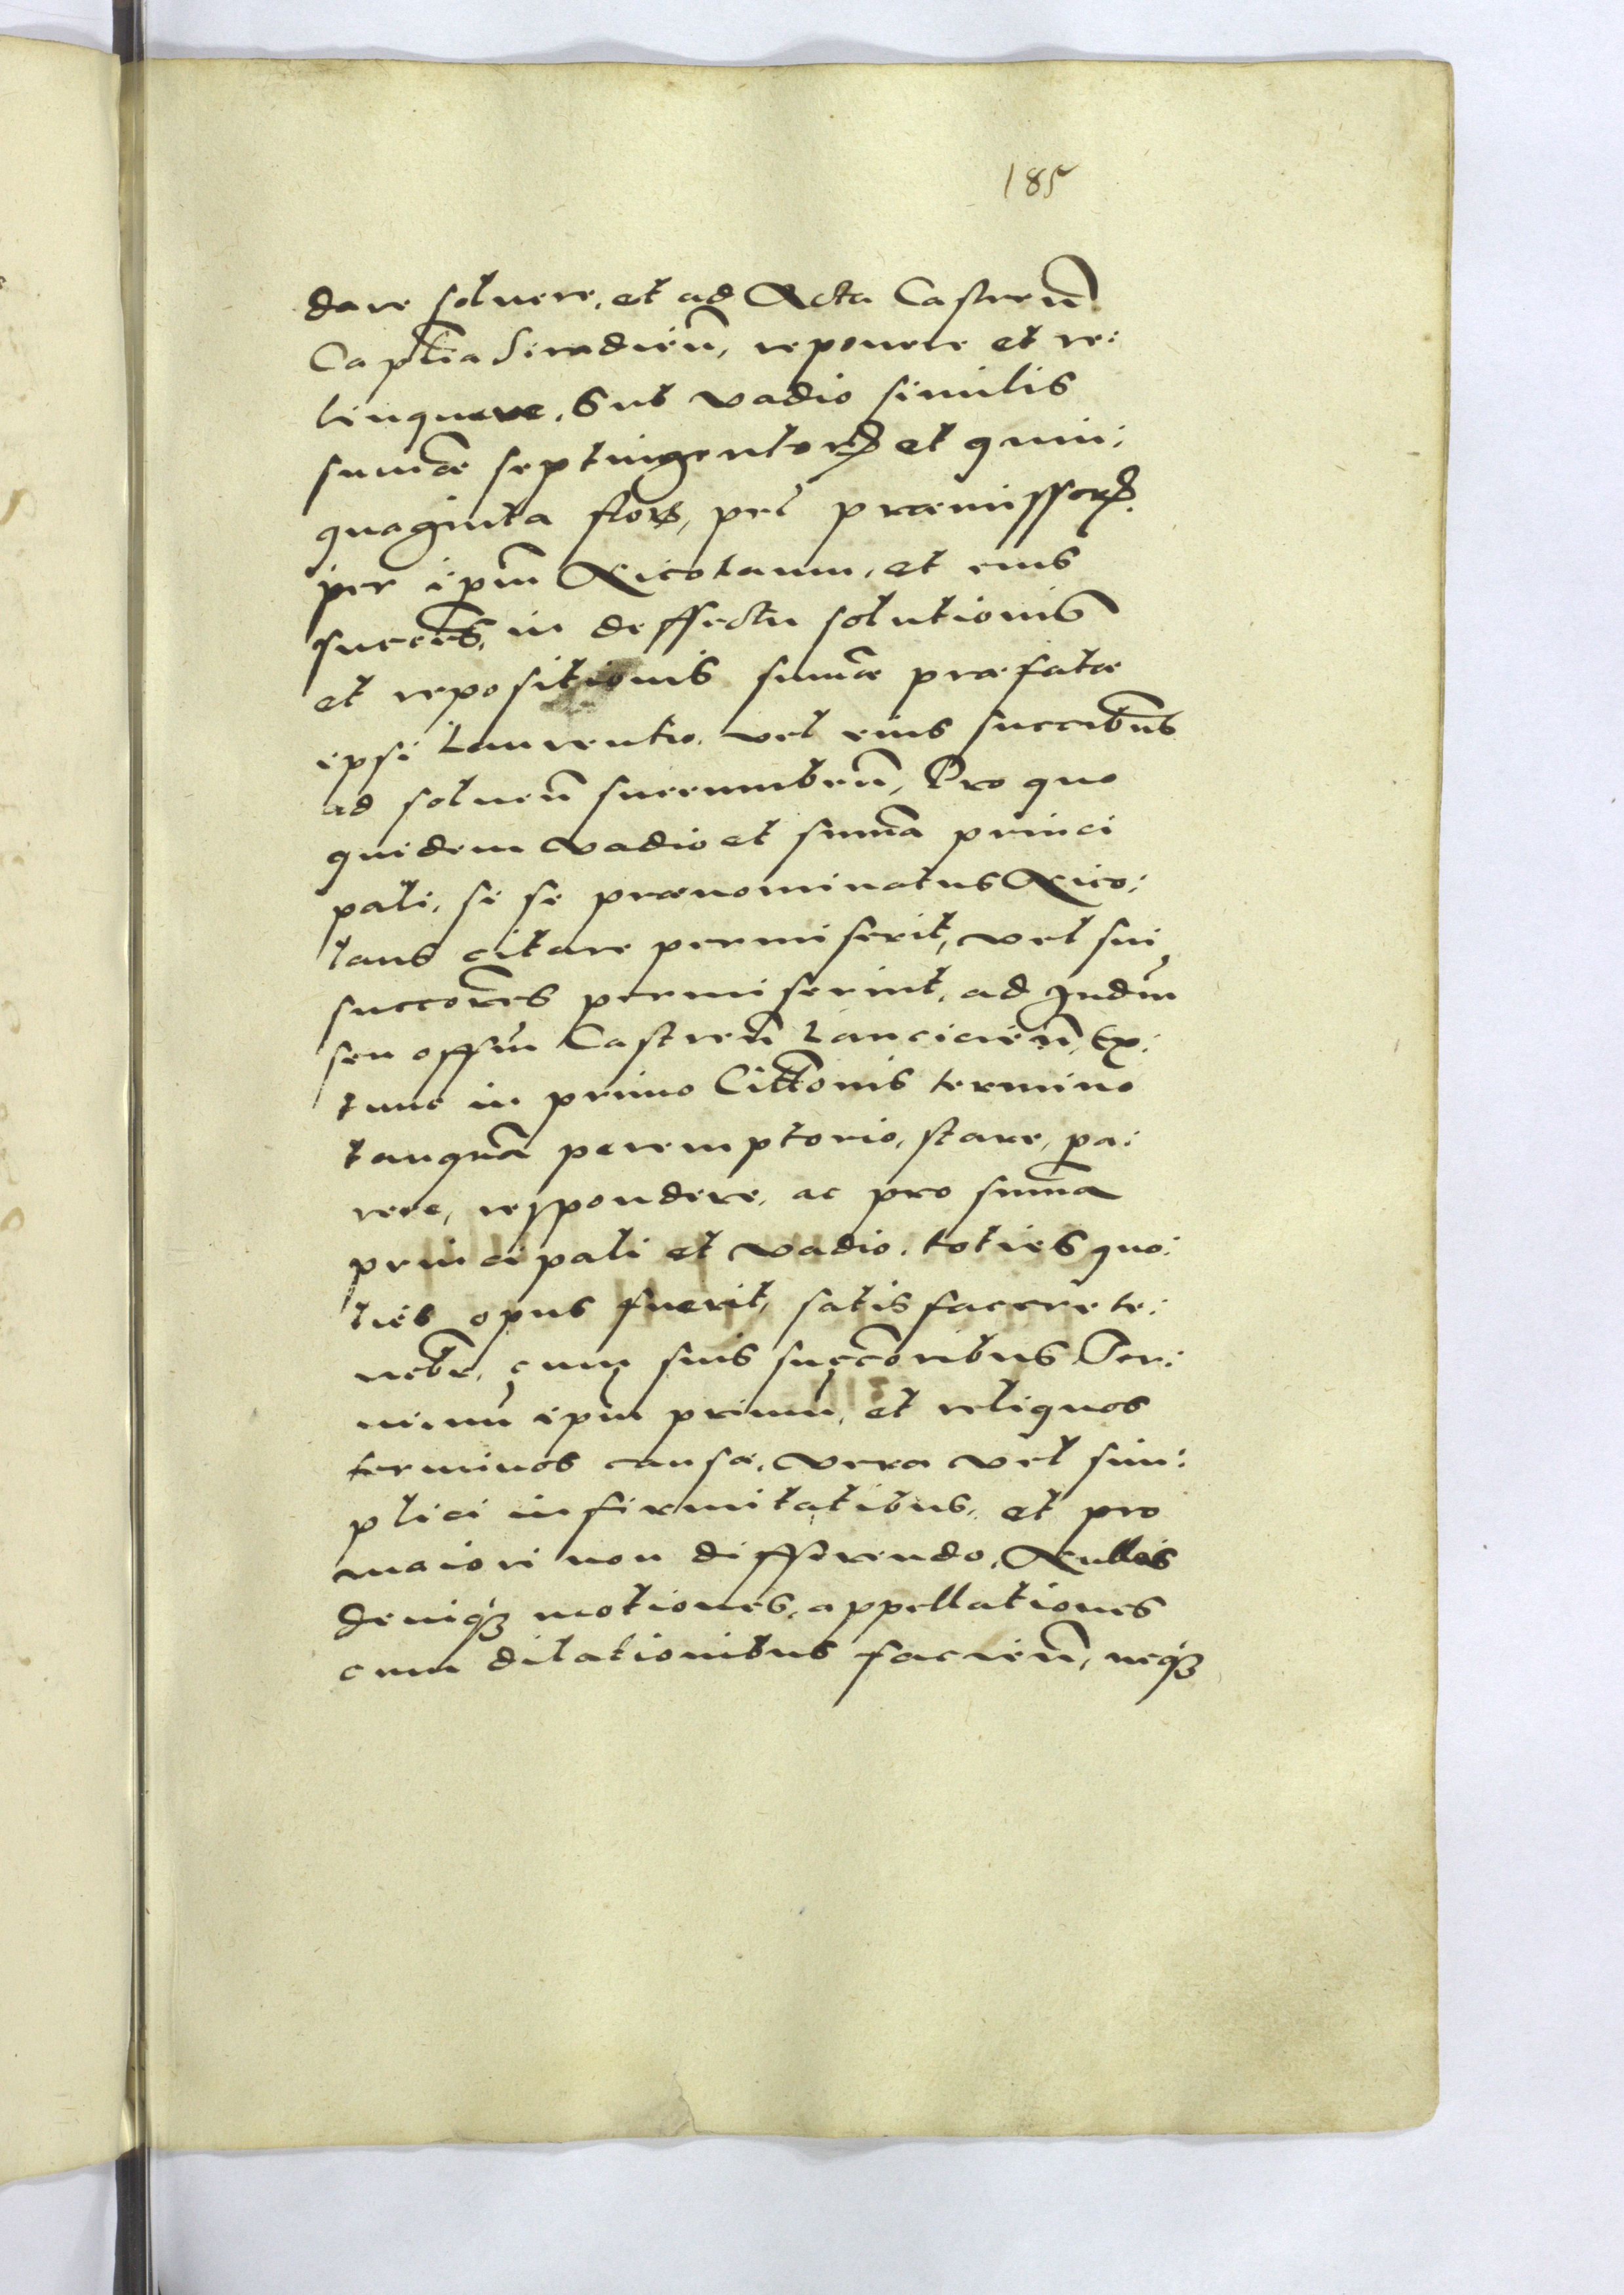 185
dare soluere, et ad Acta Castren̄
Capt̄lia Siradień, reponere et re:
linquere, Sub vadio similis
sum̄æ septingentorꝝ et quin:
quaginta flor̄, pēl præmissorꝝ
per ip̄m Nicolaum, et eius
succeē͞s, in deffectu solutionis
et repositionis sum̄æ præfatæ
ipsi Laurentio, vel eius succib̄us
ad soluen̄ succumben̄, Pro quo
quidem vadio et sum̄a princi
pali, si se prænominatus Nico:
laus citare permiserit, vel sui
succōres permiserint, ad Iud̄m
seu off̄m Castren̄ Lancicień, Ex:
tunc in primo Citt̄onis termino
tanquā peremptorio, stare, pa:
rere, respondere, ac pro sum̄a
principali et vadio, toties quo:
ties opus fuerit, satisfacere te:
neb̄r, cum suis succ̄oribus Ter:
minū ip̄m primū, et reliquos
terminos causæ, vera vel sim:
plici infirmitatibus, et pro
maiori non differendo, Nullas
deniqꝫ motiones, appellationes
cum dilationibus facień, neqꝫ